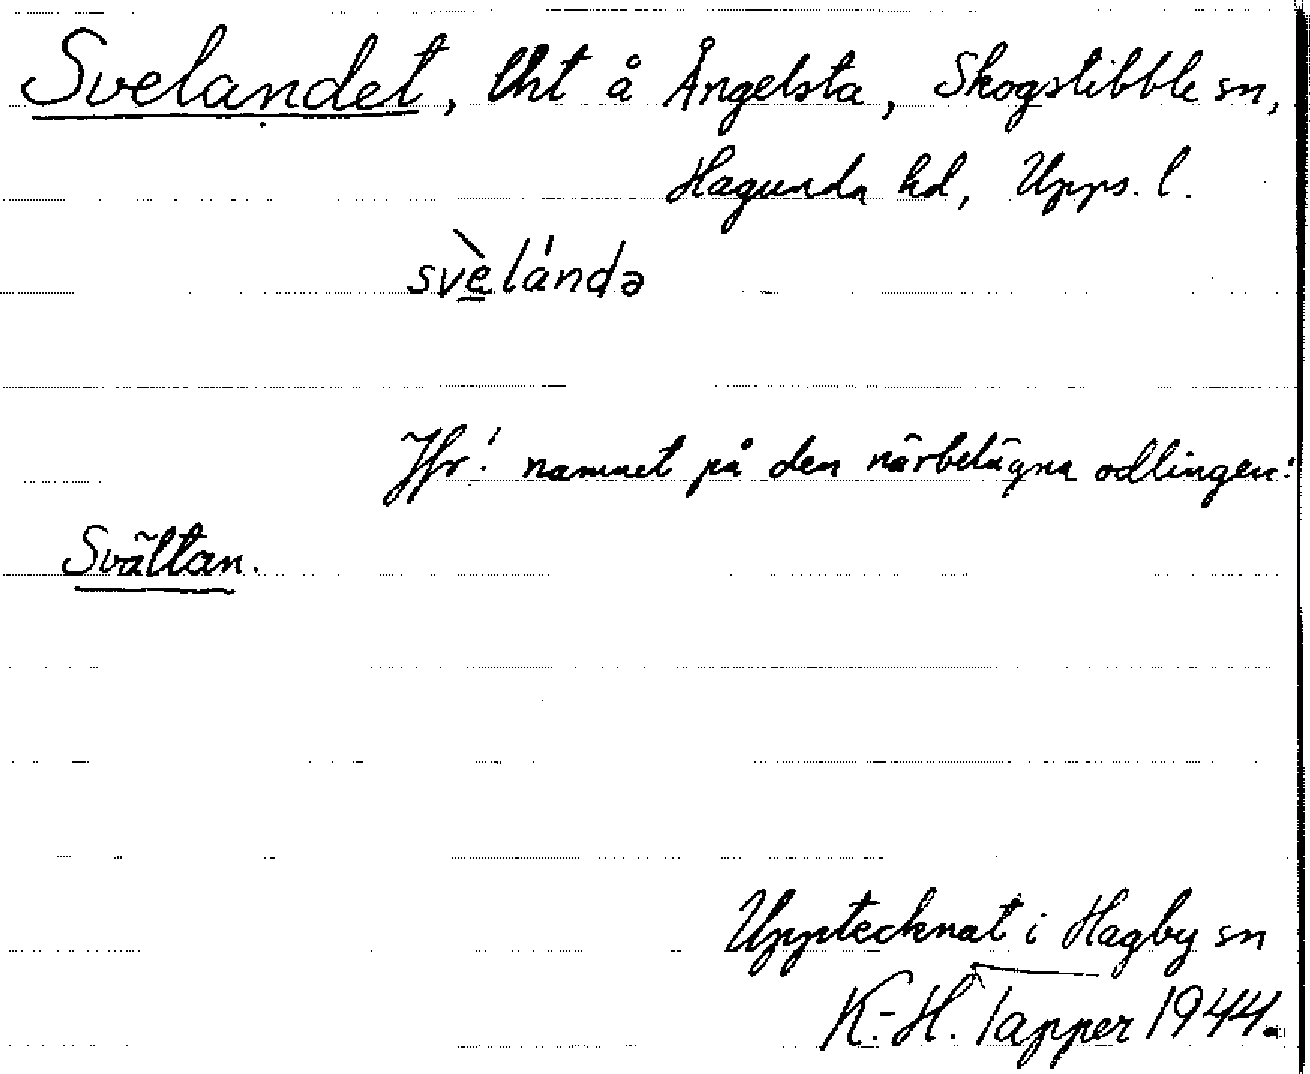 Svelandet, lht å Ängelsta, Skogstibble sn,
Hagunda hd, Upps. l.
svèlándə
Jfr! namnet på den närbelägna odlingen:
Svältan.
Upptecknat i Hagby sn
K.-H. Tapper 1944.